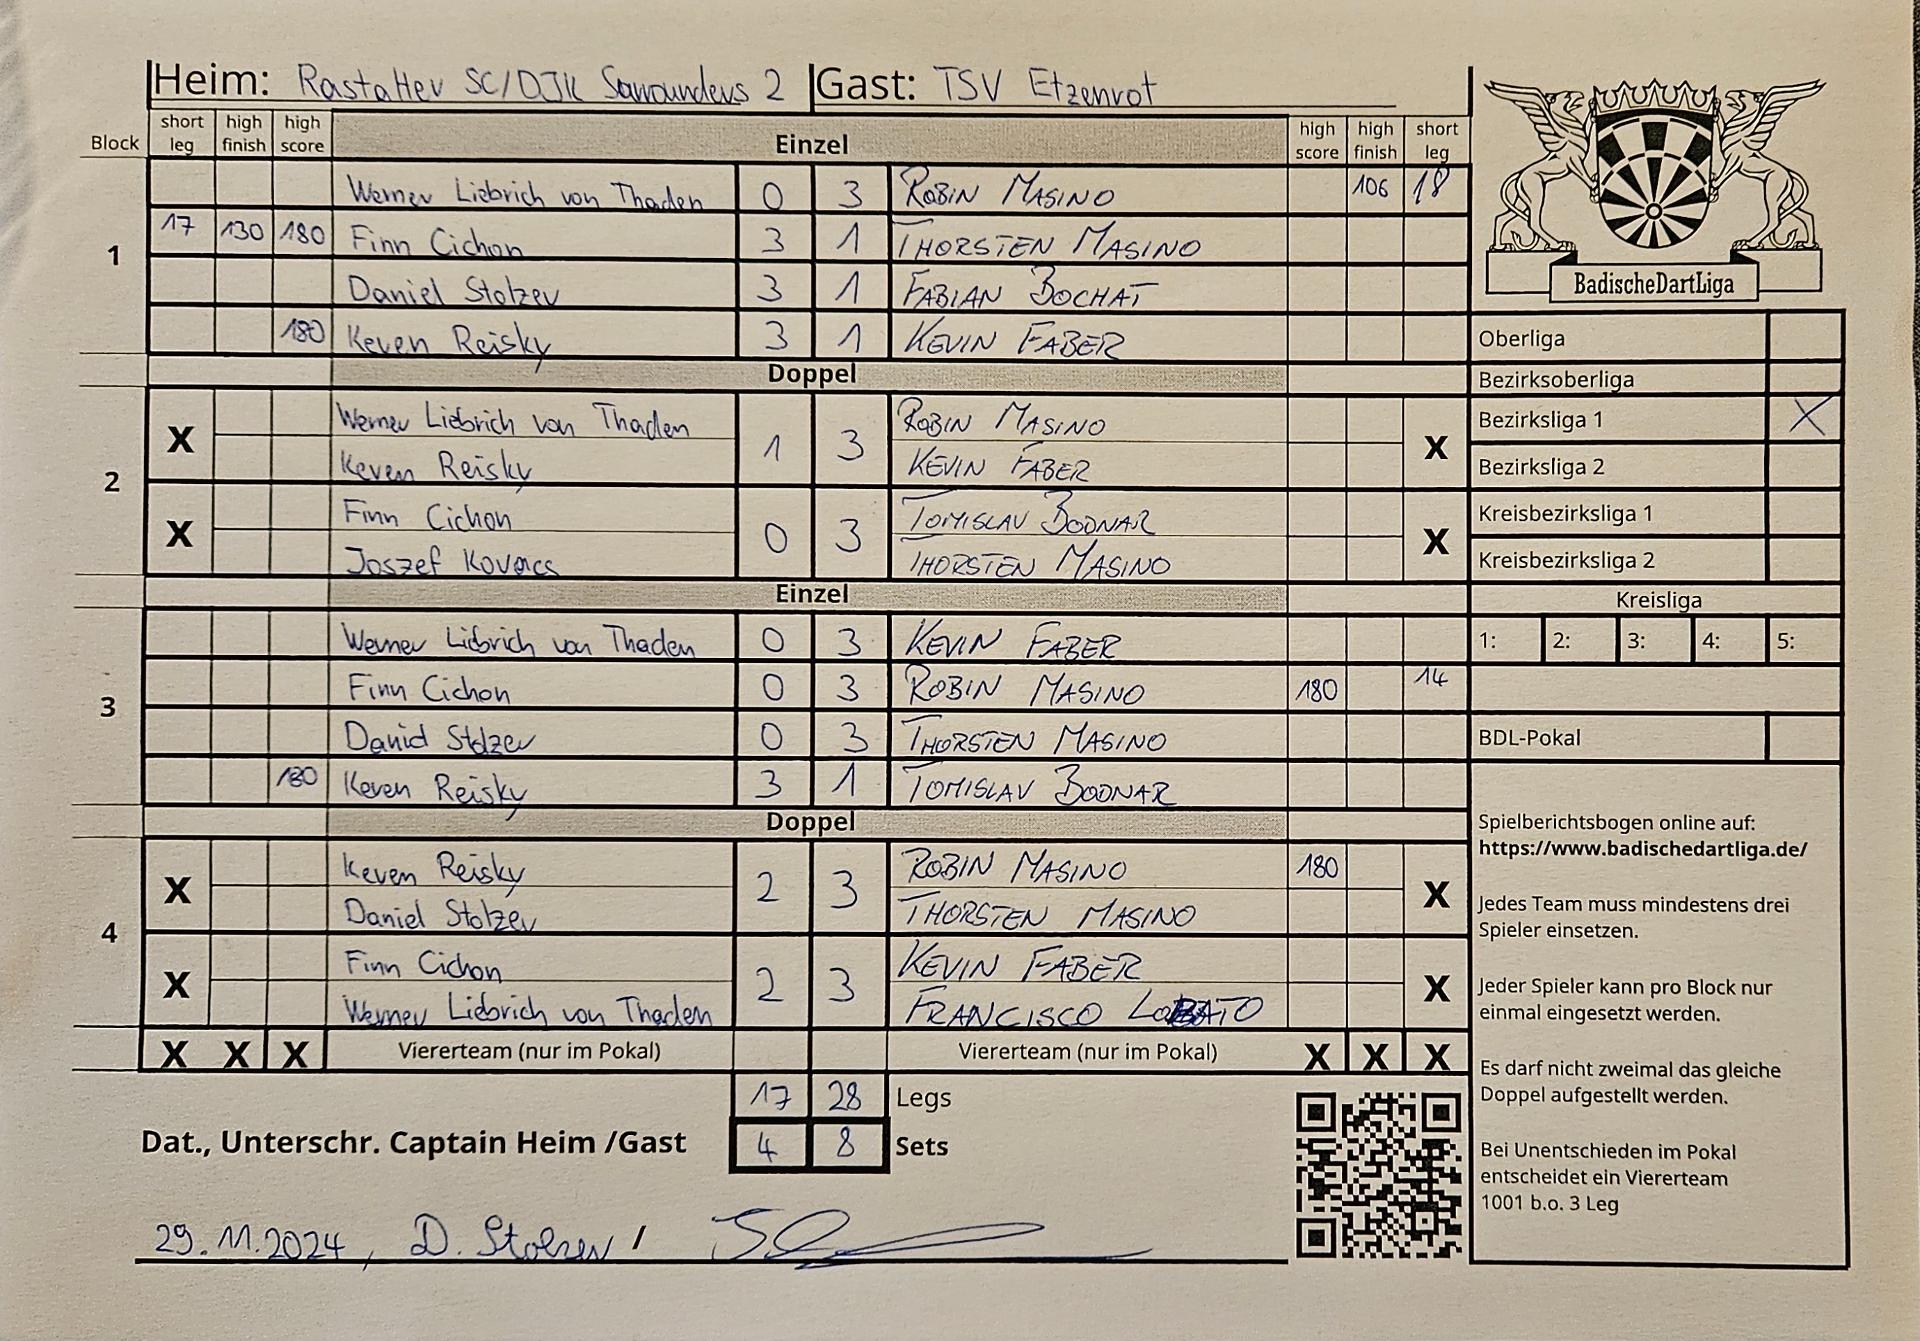 Heim: Rastatter SC/DJK Sarrounders 2 Gast: TSV Etzenrot
Block short leg high finish high score Einzel high score high finish short leg
Werner Liebrich von Thaden 0 3 ROBIN MASINO 106 18
1 17 130 180 Finn Cichon 3 1 THORSTEN MASINO
Daniel Stolzer 3 1 FABIAN BOCHAT
180 Keven Reisky 3 1 KEVIN FABER
Doppel
2 X Werner Liebrich von Thaden 1 3 ROBIN MASINO X
Keven Reisky KEVIN FABER
X Finn Cichon 0 3 TOMISLAV BODNAR X
Joszef Kovacs THORSTEN MASINO
Einzel
Werner Liebrich von Thaden 0 3 KEVIN FABER
3 Finn Cichon 0 3 ROBIN MASINO 180 14
Daniel Stolzer 0 3 THORSTEN MASINO
180 Keven Reisky 3 1 TOMISLAV BODNAR
Doppel
4 X Keven Reisky 2 3 ROBIN MASINO 180 X
Daniel Stolzer THORSTEN MASINO
X Finn Cichon 2 3 KEVIN FABER X
Werner Liebrich von Thaden FRANCISCO LOBATO
X X X Viererteam (nur im Pokal) Viererteam (nur im Pokal) X X X
17 28 Legs
Dat., Unterschr. Captain Heim /Gast 4 8 Sets
29.11.2024, D. Stolzer /
BadischeDartLiga
Oberliga
Bezirksoberliga
Bezirksliga 1 X
Bezirksliga 2
Kreisbezirksliga 1
Kreisbezirksliga 2
Kreisliga
1: 2: 3: 4: 5:
BDL-Pokal
Spielberichtsbogen online auf:
https://www.badischedartliga.de/
Jedes Team muss mindestens drei
Spieler einsetzen.
Jeder Spieler kann pro Block nur
einmal eingesetzt werden.
Es darf nicht zweimal das gleiche
Doppel aufgestellt werden.
Bei Unentschieden im Pokal
entscheidet ein Viererteam
1001 b.o. 3 Leg